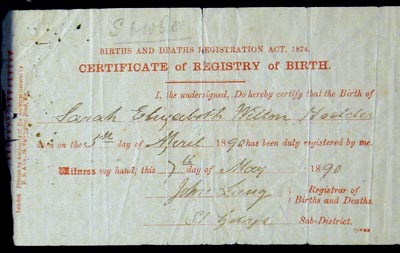 BIRTHS AND DEATHS REGISTRATION ACT, 1874.
CERTIFICATE OF REGISTRY OF BIRTH.
I, the undersigned, Do hereby certify that the Birth of
Sarah Elizabeth Wilton
on the 5th day of April 1890 has been duly registered by me.
Witness my hand, this 7th day of May 1890
John Registrar of
Births and Deaths.
St George Sub-District.